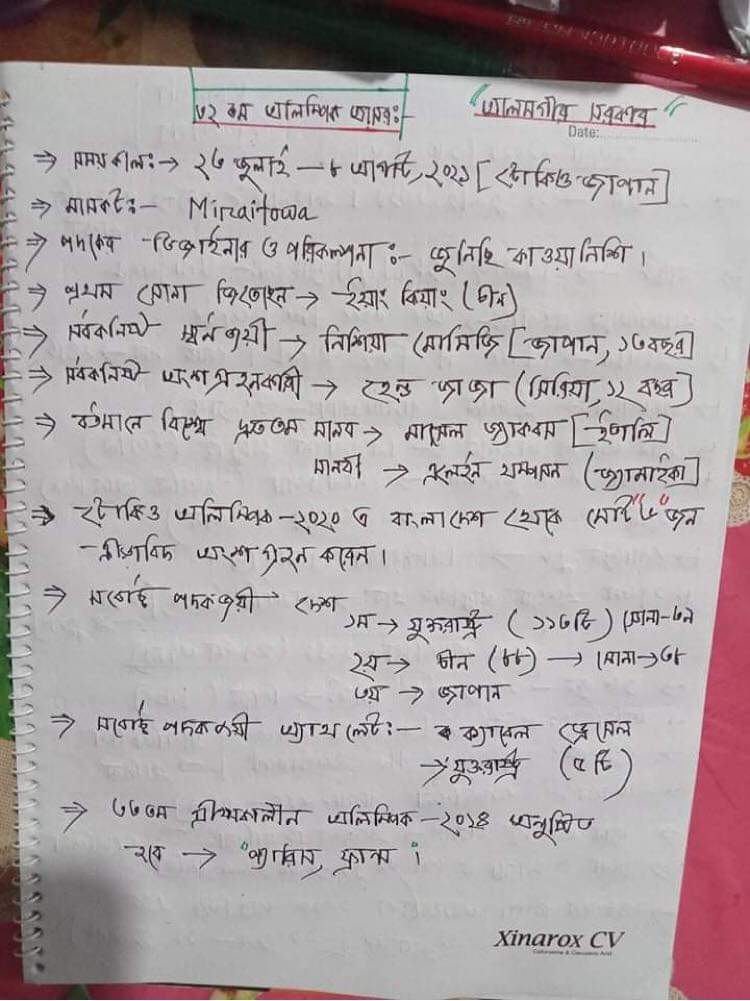 ৩২ তম অলিম্পিক আসর:-
"আলমগীর সরকার"
Date:
⇒ সময়কাল:→ ২৩ জুলাই — ৮ আগস্ট, ২০২১ [টোকিও জাপান]
⇒ মাসকট:- Miraitowa
⇒ পদকের ডিজাইনার ও পরিকল্পনা :- জুনিচি কাওয়ানিশি।
⇒ প্রথম সোনা জিতেছেন → ইয়াং কিয়াং (চীন)
⇒ সর্বকনিষ্ঠ স্বর্ন জয়ী → নিশিয়া মোমিজি [জাপান, ১৩বছর]
⇒ সর্বকনিষ্ঠ অংশগ্রহনকারী → হেন্ড জাজা (সিরিয়া, ১২ বছর)
⇒ বর্তমানে বিশ্বের দ্রুততম মানব → মার্সেল জ্যাকবস [ইটালি]
মানবী → এলেইন থম্পসন (জ্যামাইকা]
⇒ টোকিও অলিম্পিক -২০২০ এ বাংলাদেশ থেকে মোট "৬" জন
ক্রীড়াবিদ অংশগ্রহন করেন।
⇒ সর্বোচ্চ পদকজয়ী দেশ
১ম → যুক্তরাষ্ট্র (১১৩টি) সোনা-৩৯
২য় → চীন (৮৮) → সোনা→৩৮
৩য় → জাপান
⇒ সর্বোচ্চ পদকজয়ী অ্যাথলেট:- ক্যালেব ড্রেসেল
→ যুক্তরাষ্ট্র (৫ টি)
⇒ ৩৩তম গ্রীষ্মকালীন অলিম্পিক -২০২৪ অনুষ্ঠিত
হবে → "প্যারিস, ফ্রান্স।
Xinarox CV